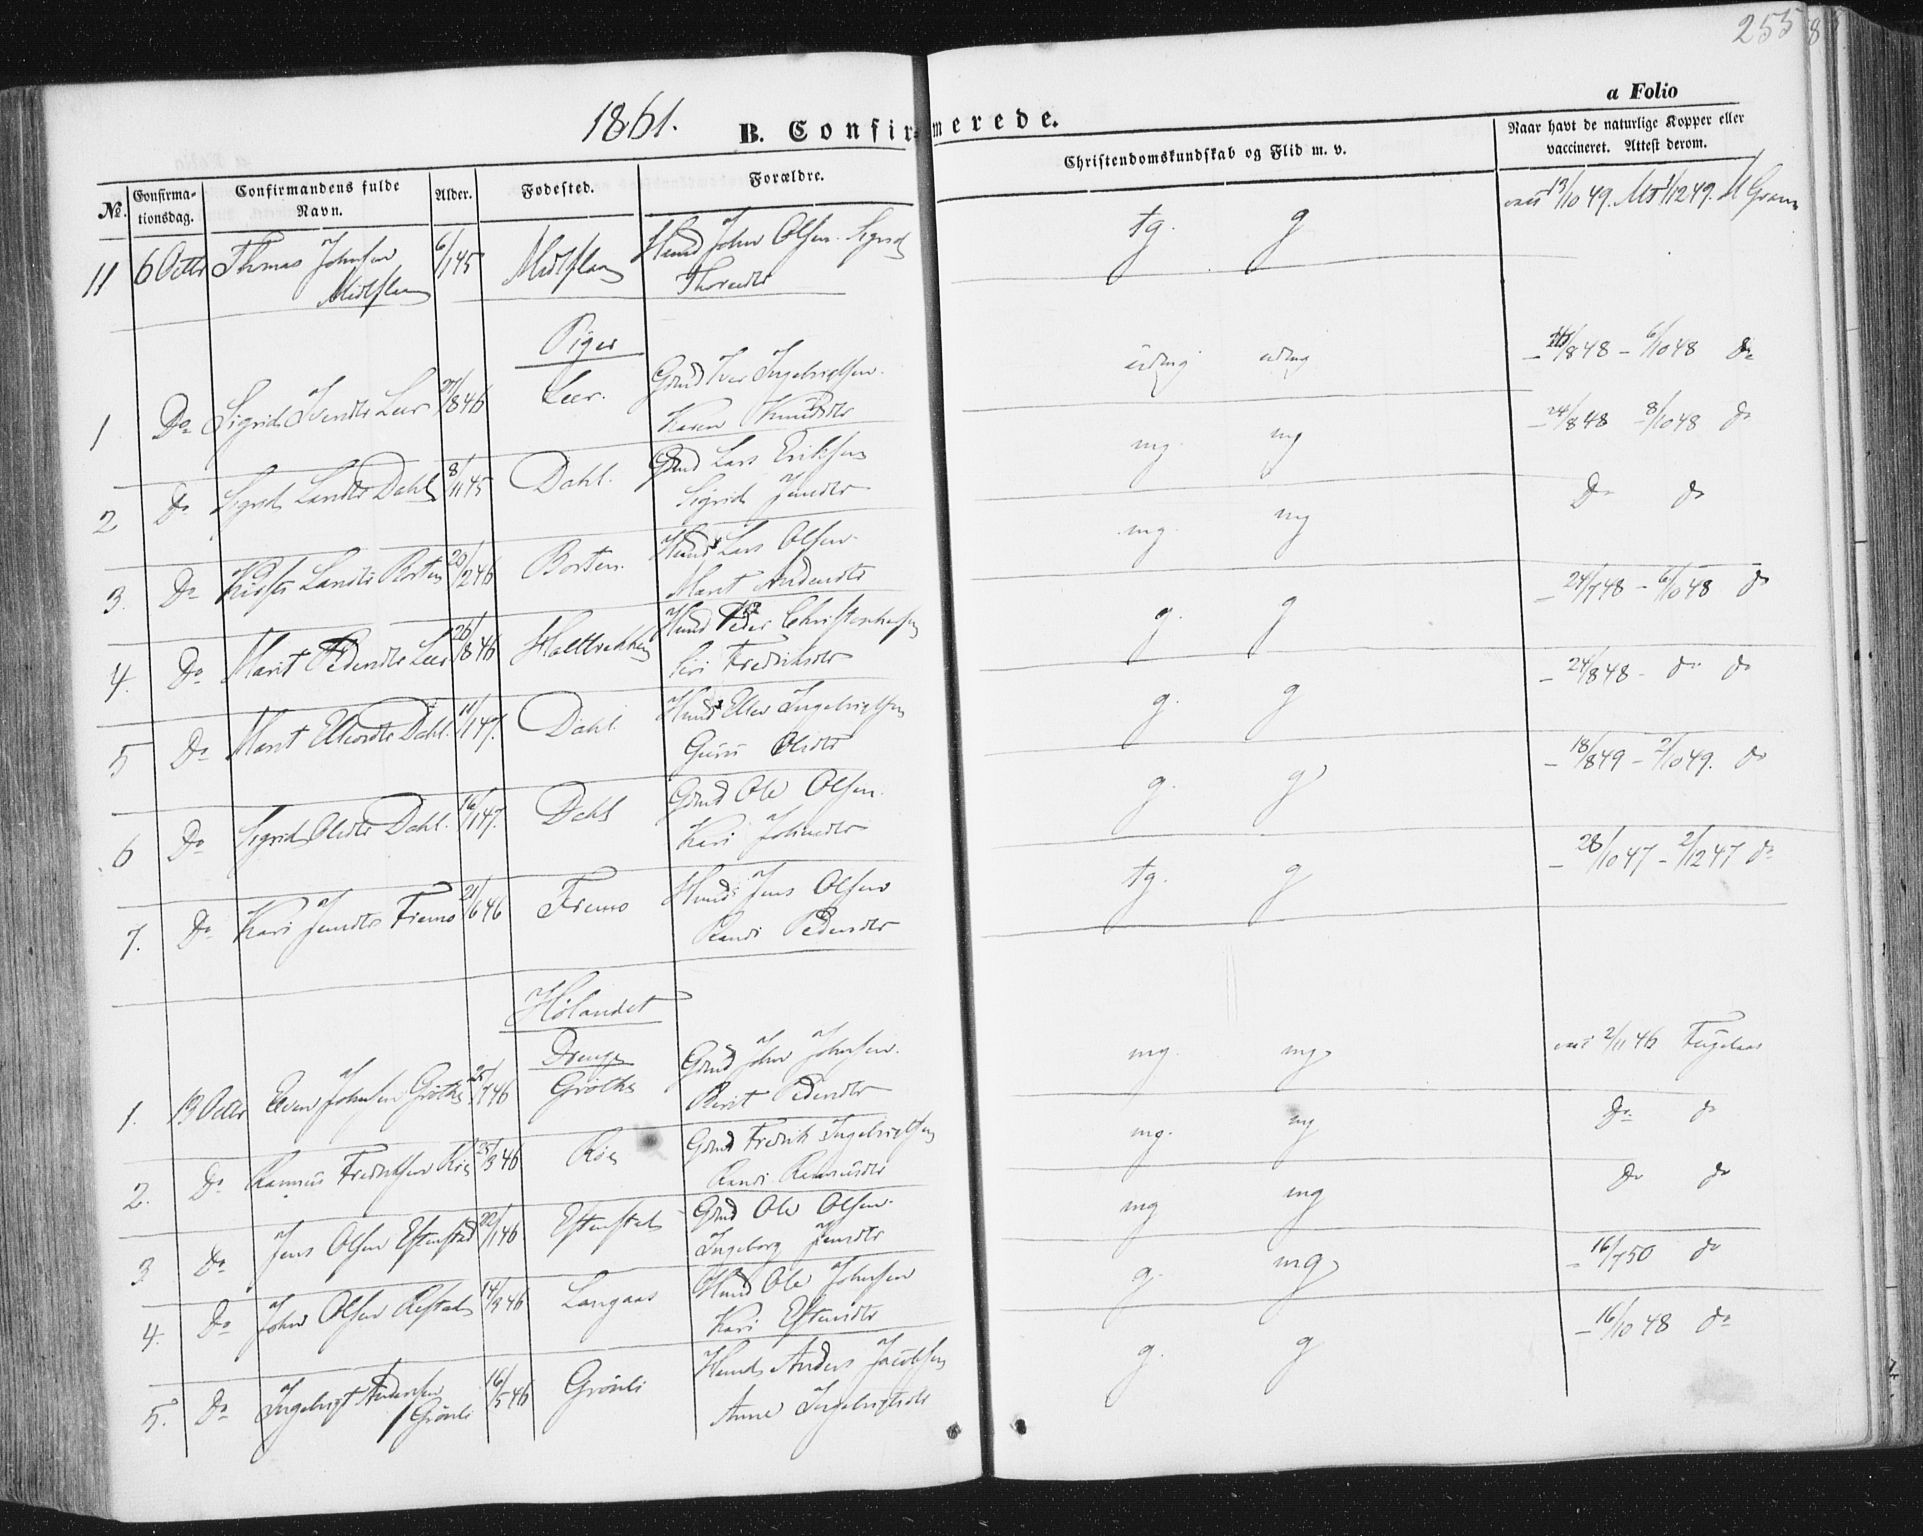 255
8
1861.
B. Confirmerede.
a Folio
No. Confirmationsdag. Confirmandens fulde Navn. Alder. Fødested. Forældre. Christendomskundskab og Flid m. v. Naar havt de naturlige Kopper eller vaccineret. Attest derom.
11 6 Octbr Thomas Johnsen 6/11 45 Hmd John Olsen. Sigrid tg. g vacc 13/10 49. 1/12 49.
Thoresdtr
Piger
1 Do Sigrid Iversdtr Leer 27/8 46 Leer. Gmd Iver Ingebrigtsen. udmg udmg 6/10 48 do
Karen Knudsdtr
2 Do Sigrid Larsdtr Dahl 8/11 45 Dahl. Gmd Lars Eriksen mg. mg - 24/8 48 - 8/10 48 do
Sigrid Jensdtr
3. Do Larsdtr Borten 20/2 46 Borten. Hmd Lars Olsen. mg. mg Do do
Marit Andersdtr
4. Do Marit Pedersdtr Leer 26/8 46 Hmd Peder Christophersen g. g - 24/7 48 - 6/10 48 do
Siri Fredriksdtr
5 Do Marit Ellevsdtr Dahl. 11/1 47. Dahl. Hmd Ellev Ingebrigtsen g. g - 24/8 48 - do do
Guru Olsdtr
6 Do Sigrid Olsdtr Dahl. 16/1 47. Dahl Gmd Ole Olsen. g. g - 18/8 49 - 2/10 49. do
Kari Johnsdtr
7. Do Kari Jensdtr Fremo 21/6 46 Fremo Hmd Jens Olsen tg. g - 28/10 47 - 2/12 47 do
Randi Pedersdtr
Hølandet
Drenge
1. 13 Octbr Even Johnsen Grøthe 25/7 46 Grøthe Gmd John Johnsen. mg. mg vacc 2/11 46
Berit Pedersdtr
2. Do Rasmus Fredriksen Røe 25/3 46 Røe Gmd Fredrik Ingebrigtsen mg. mg Do do
Randi Rasmusdtr
3 Do Jens Olsen Estenstad 22/1 46 Estenstad Gmd Ole Olsen. mg mg Do do
Ingeborg Jensdtr
4. Do John Olsen 14/3 46 Langaas Hmd Ole Johnsen g. mg - 16/7 50 do
Kari Estensdtr
5. Do Ingebrigt Andersen 16/5 46 Grønli Hmd Anders Jacobsen g. g - 16/10 48 do
Grønli Anne Ingebrigtsdtr